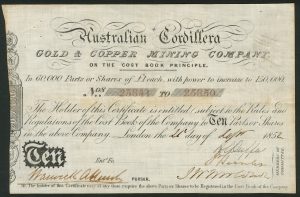 Australian Cordillera
GOLD & COPPER MINING COMPANY
ON THE COST BOOK PRINCIPLE.
In 60,000 Parts or Shares of £1 each, with power to increase to 150,000.
Nos 25841 TO 25850
The Holder of this Certificate is entitled (subject to the Rules and
Regulations of the Cost Book of the Company) to Ten Parts or Shares
in the above Company. London the day of Sept 1852
Ten
Entd.
PURSER.
MEMBERS OF
COMMITTEE
The Holder of this Certificate may at any time require the above Parts or Shares to be Registered in the Cost Book of the Company